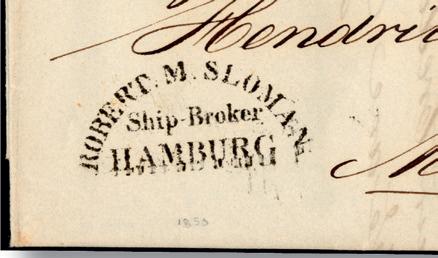 Hendri
ROBERT. M. SLOMAN
Ship-Broker
HAMBURG
M
1853